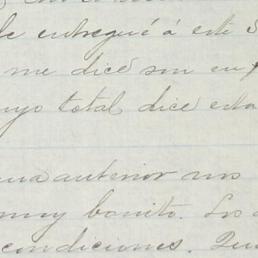 le entregué á este S
me dice son en
uyo total dice esta
ma anterior nos
muy bonito. Los
condiciones. Que